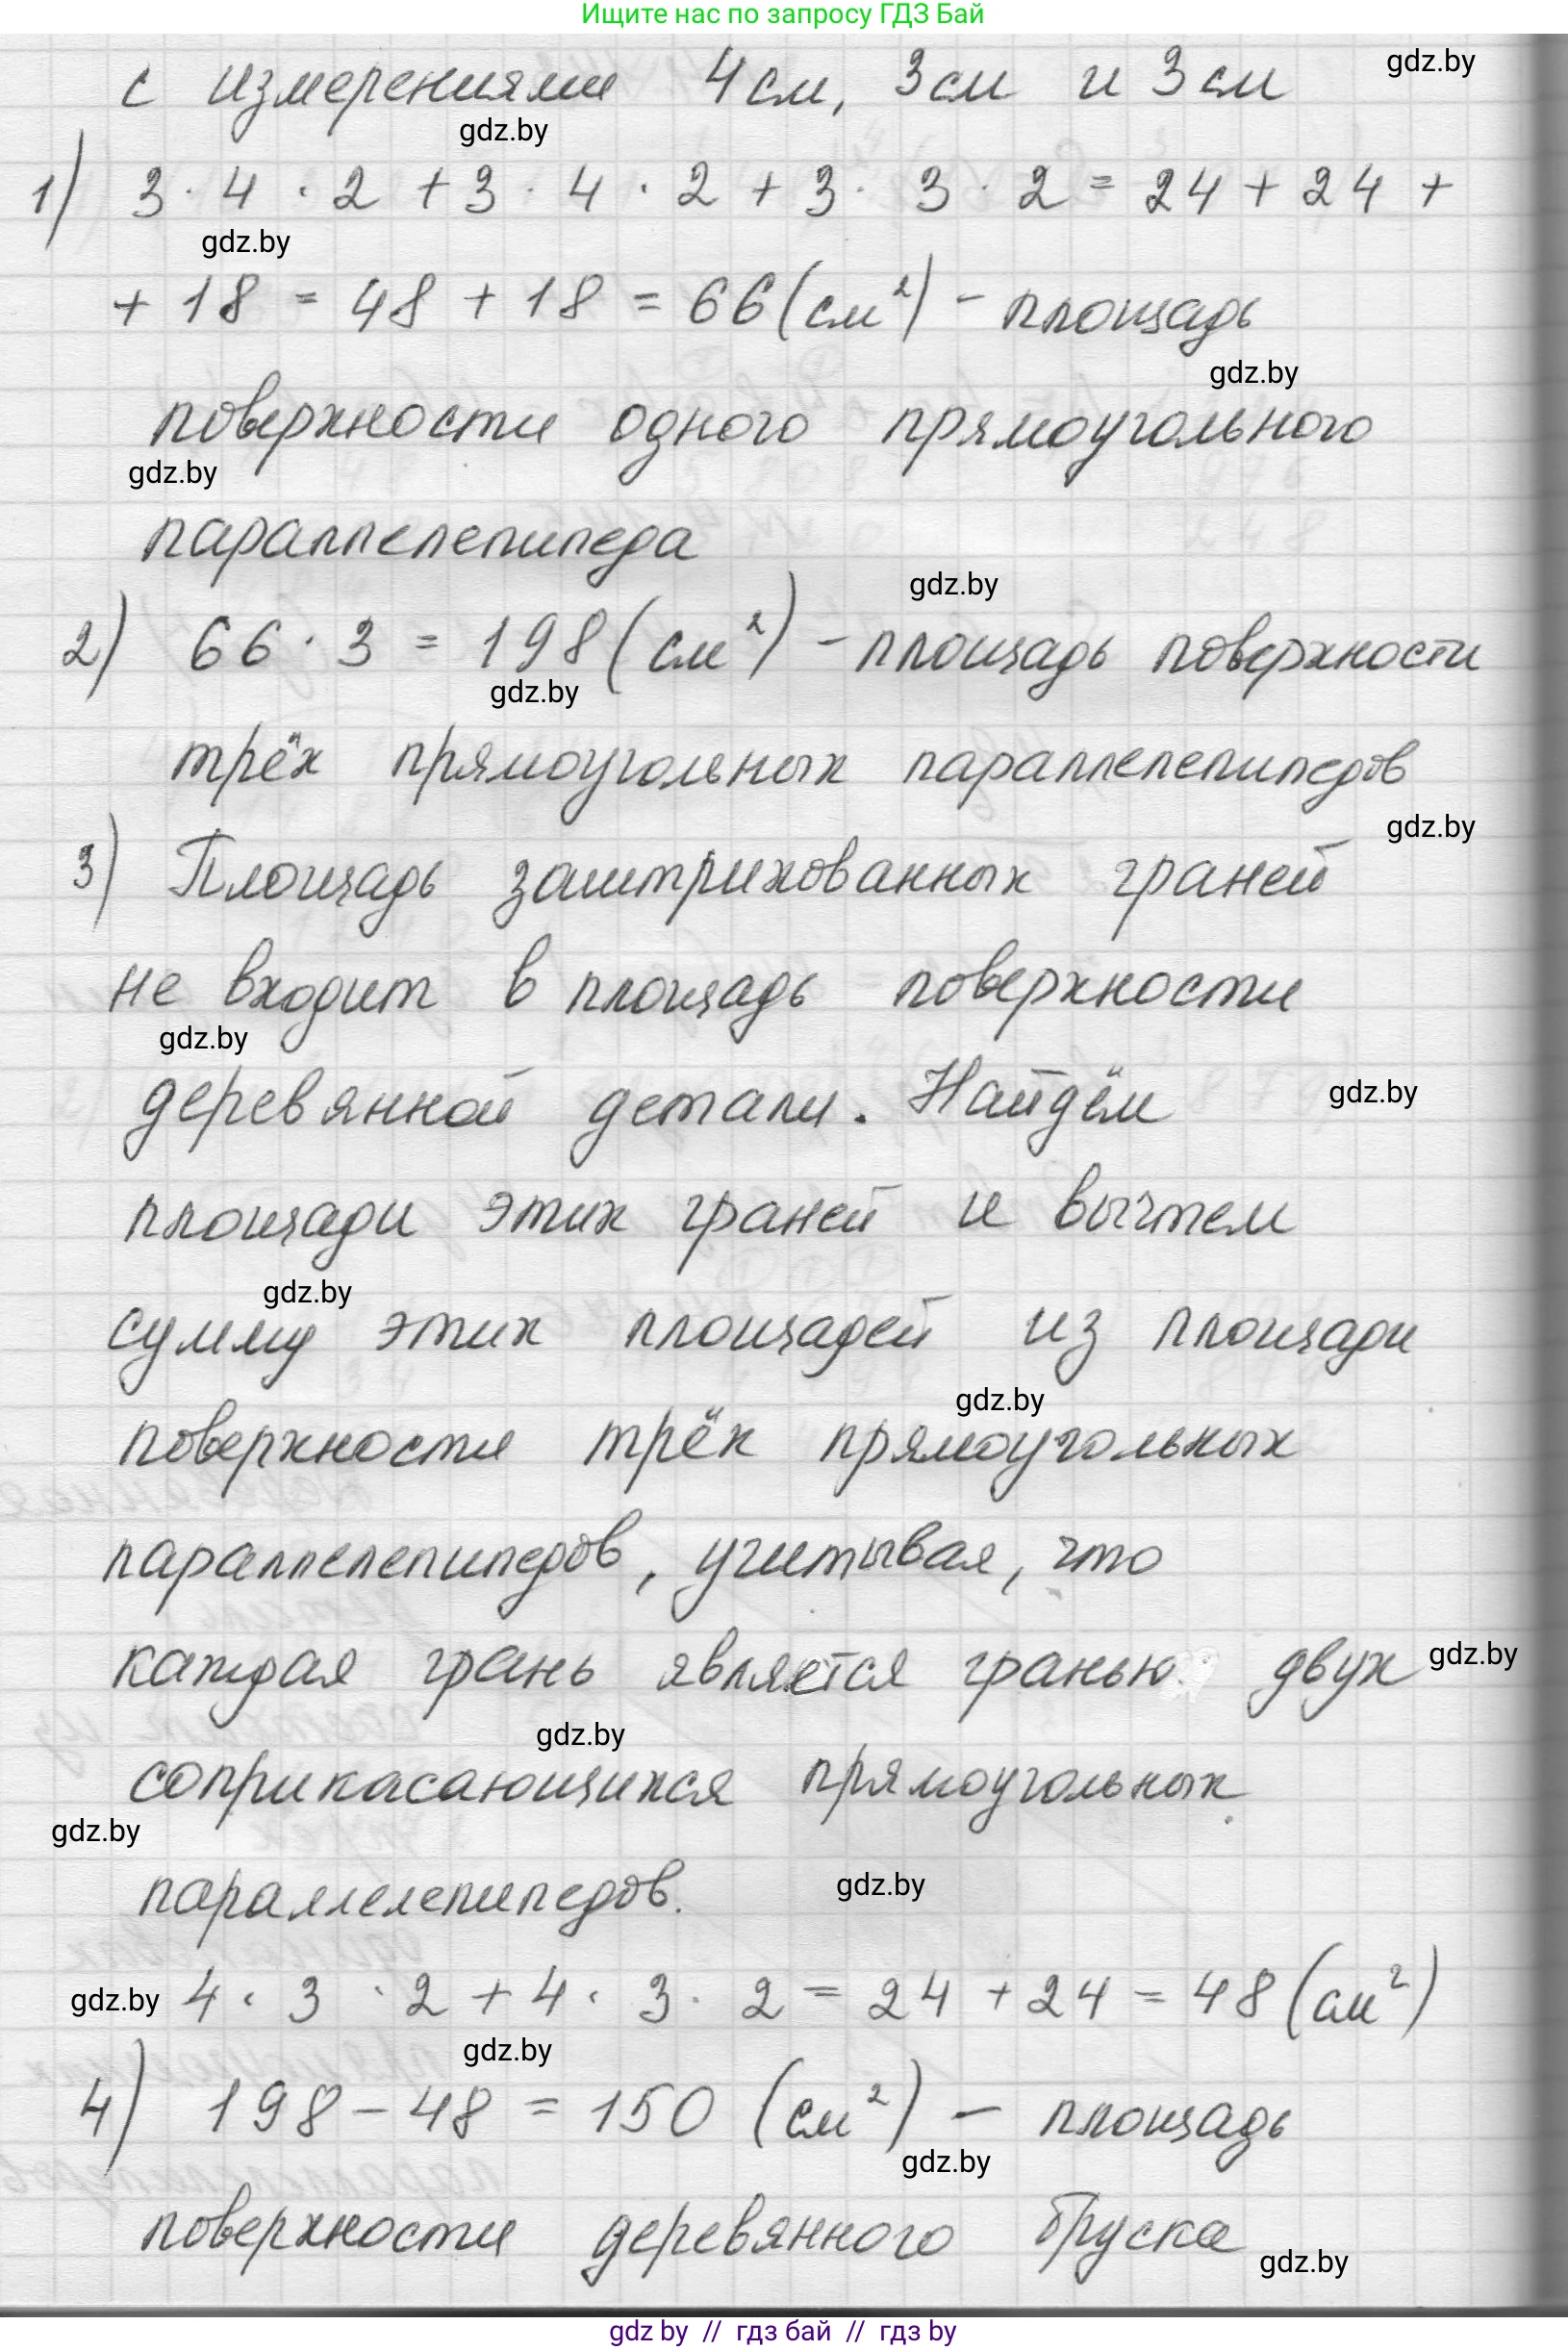 Ищите нас по запросу ГДЗ Бай
с измерениями 4см, 3см и 3см
gdz.by
gdz.by
1) 3 · 4 · 2 + 3 · 4 · 2 + 3 · 3 · 2 = 24 + 24 +
gdz.by
+ 18 = 48 + 18 = 66 (см²) - площадь
gdz.by
поверхности одного прямоугольного
gdz.by
параллелепипеда
gdz.by
2) 66 · 3 = 198 (см²) - площадь поверхности
gdz.by
трёх прямоугольных параллелепипедов
gdz.by
3) Площадь заштрихованных граней
не входит в площадь поверхности
gdz.by
деревянной детали. Найдём
gdz.by
площади этих граней и вычтем
gdz.by
сумму этих площадей из площади
gdz.by
поверхности трёх прямоугольных
параллелепипедов, учитывая, что
каждая грань является гранью двух
gdz.by
gdz.by
соприкасающихся прямоугольных
gdz.by
параллелепипедов.
gdz.by
gdz.by
4 · 3 · 2 + 4 · 3 · 2 = 24 + 24 = 48 (см²)
gdz.by
4) 198 - 48 = 150 (см²) - площадь
gdz.by
поверхности деревянного бруска
gdz.by
gdz.by // гдз бай // гдз by